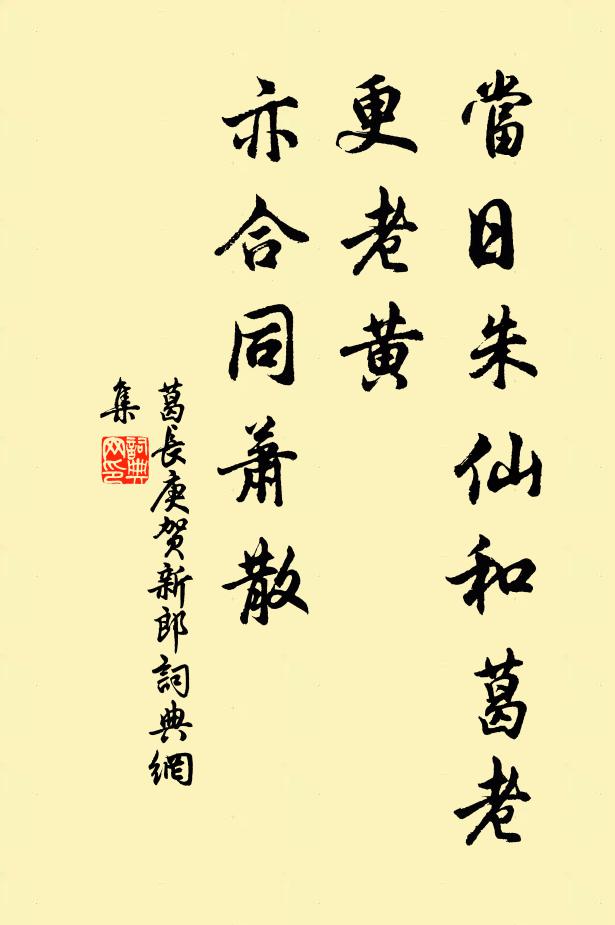 當日朱仙和葛老
更老黄
亦合同蕭散
葛長庚賀新郎詞典網
集
詞典
网印